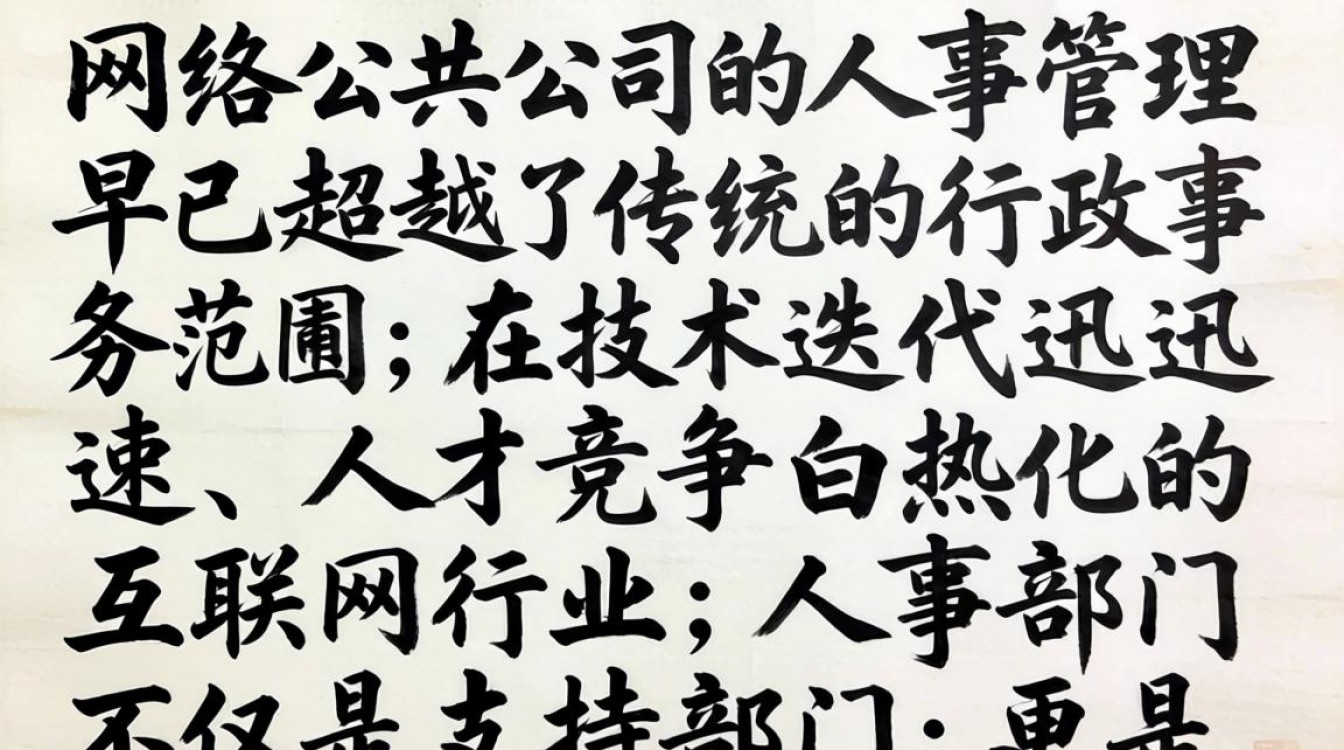 网络公共公司的人事管理
早已超越了传统的行政事
务范围；在技术迭代迅迅
速、人才竞争白热化的
互联网行业；人事部门
不仅是支持部门；更是